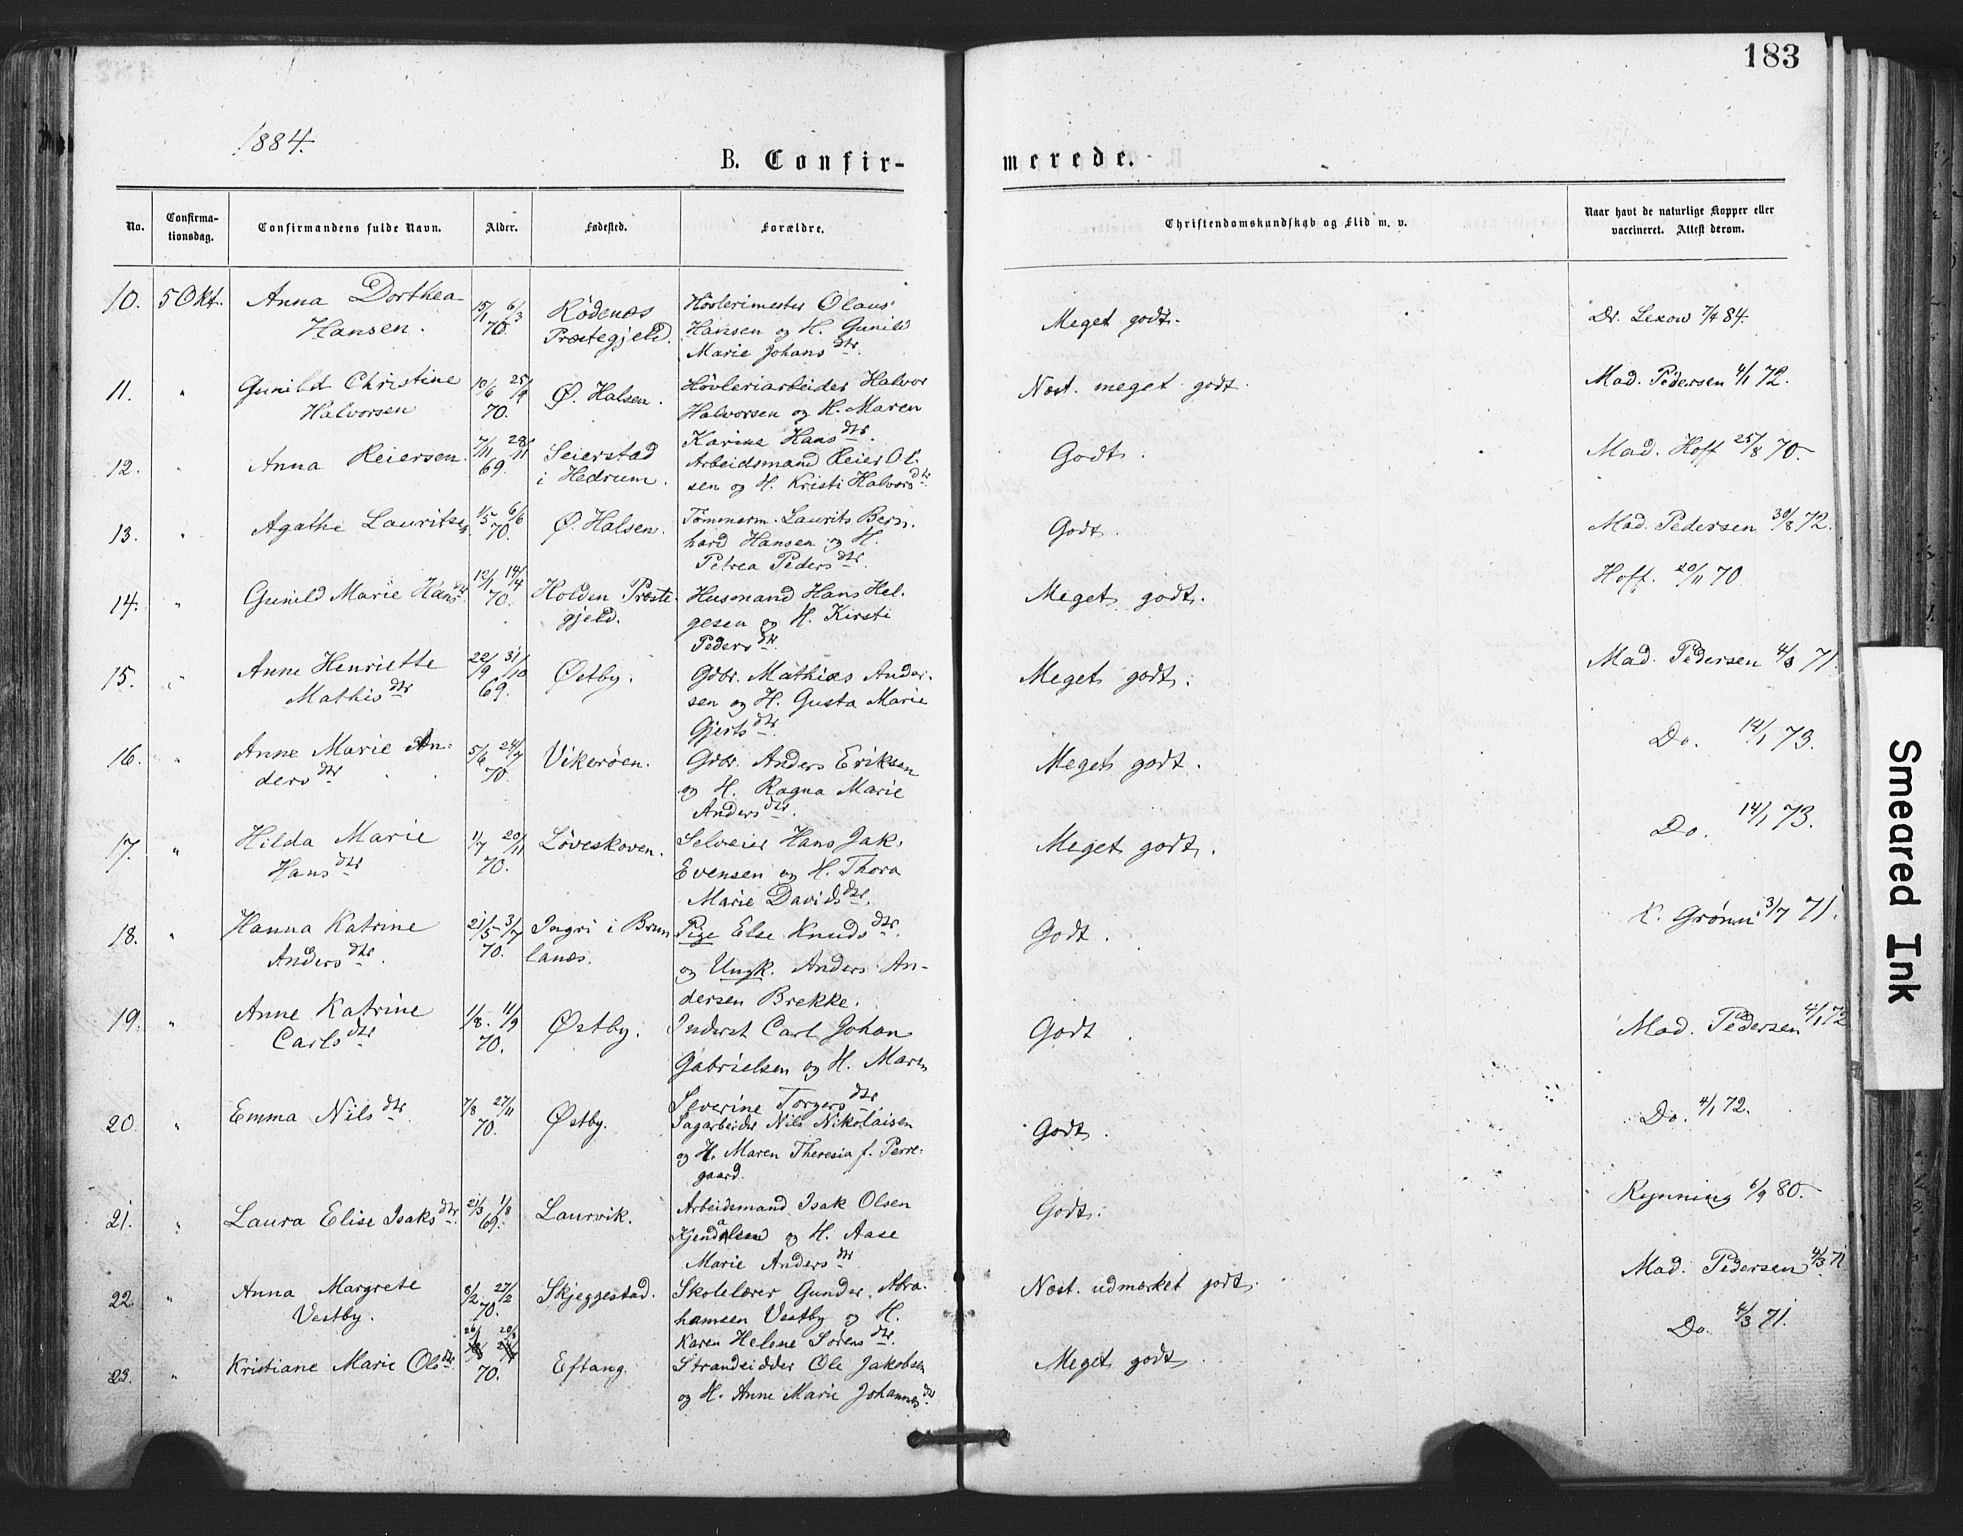 183
1884.
B. Confir-
merede.
No.
Confirma-
tionsdag.
Confirmandens fulde Navn.
Alder.
Fødested.
Forældre.
Christendomskundskab og Flid m. v.
Naar havt de naturlige Kopper eller
vaccineret. Attest derom.
10. 5 Okt. Anna Dorthea 15/1 6/3 Rødenæs Høvlerimester Olaus
Hansen. 70. Præstegjeld. Hansen og H. Gunild
Marie Johansdtr.
Meget godt. Dr. Lexow 7/4 84.
11. " Gunild Christine 10/6 25/9 Ø. Halsen. Høvleriarbeider Halvor
Halvorsen 70. Halvorsen og H. Maren
Karine Hansdtr.
Næst. meget godt. Mad. Pedersen 4/1 72.
12. " Anna Reiersen. 7/11 28/11 Seierstad Arbeidsmand Reier Ol-
69. i Hedrum. sen og H. Kristi Halvorsdtr.
Godt. Mad. Hoff 25/8 70.
13. " Agathe Lauritsen 1/5 6/6 Ø. Halsen. Tømmerm. Laurits Bern-
70. hard Hansen og H.
Petrea Pedersdtr.
Godt. Mad. Pedersen 30/8 72.
14. " Gunild Marie Hansdtr 12/1 14/4 Holden Præste- Husmand Hans Hel-
70. gjeld. gesen og H. Kirsti
Pedersdtr
Meget godt. Hoff. 20/11 70
15. " Anne Henriette 22/9 31/10 Østby. Gdbr. Mathias Ander-
Mathisdtr 69. sen og H. Gusta Marie
Gjertsdtr.
Meget godt. Mad. Pedersen 4/3 71.
16. " Anne Marie An- 5/6 24/7 Vikerøen. Gdbr. Anders Eriksen
dersdtr 70. og H. Ragna Marie
Andersdtr.
Meget godt. Do. 14/1 73.
17. " Hilda Marie 1/7 20/11 Løveskoven. Selveier Hans Jak.
Hansdtr 70. Evensen og H. Thora
Marie Davidsdtr.
Meget godt. Do. 14/1 73.
18. " Hanna Katrine 21/5 3/7 Ingri i Brun- Pige Else Knudsdtr.
Andersdtr. 70. lanæs. og Ungk. Anders An-
dersen Brekke.
Godt. K. Grønn 3/7 71.
19. " Anne Katrine 1/8. 11/9 Østby. Inderst Carl Johan
Carlsdtr 70. Gabrielsen og H. Maren
Severine Torgersdtr
Godt Mad. Pedersen 4/1 72
20. " Emma Nilsdtr. 7/8 27/11 Østby. Sagarbeider Nils Nikolaisen
70. og H. Maren Theresia f. Perre-
gaard.
Godt. Do. 4/1 72.
21. " Laura Elise Isaksdtr. 21/3 1/8 Laurvik. Arbeidsmand Isak Olsen
69. og H. Aase
Marie Andersdtr
Godt. Rynning 6/9 80.
22. " Anna Margrete 8/2 27/2 Skjeggestad. Skolelærer Gunder Abra-
Vestby. 70. hamsen Vestby og H.
Karen Helene Sørensdtr.
Næst. udmærket godt. Mad. Pedersen 4/3 71
23. " Kristiane Marie Olsdtr. 70. Eftang. Strandsidder Ole Jakobsen
og H. Anne Marie Johannesdtr.
Meget godt. Do. 4/3 71.
Smeared Ink